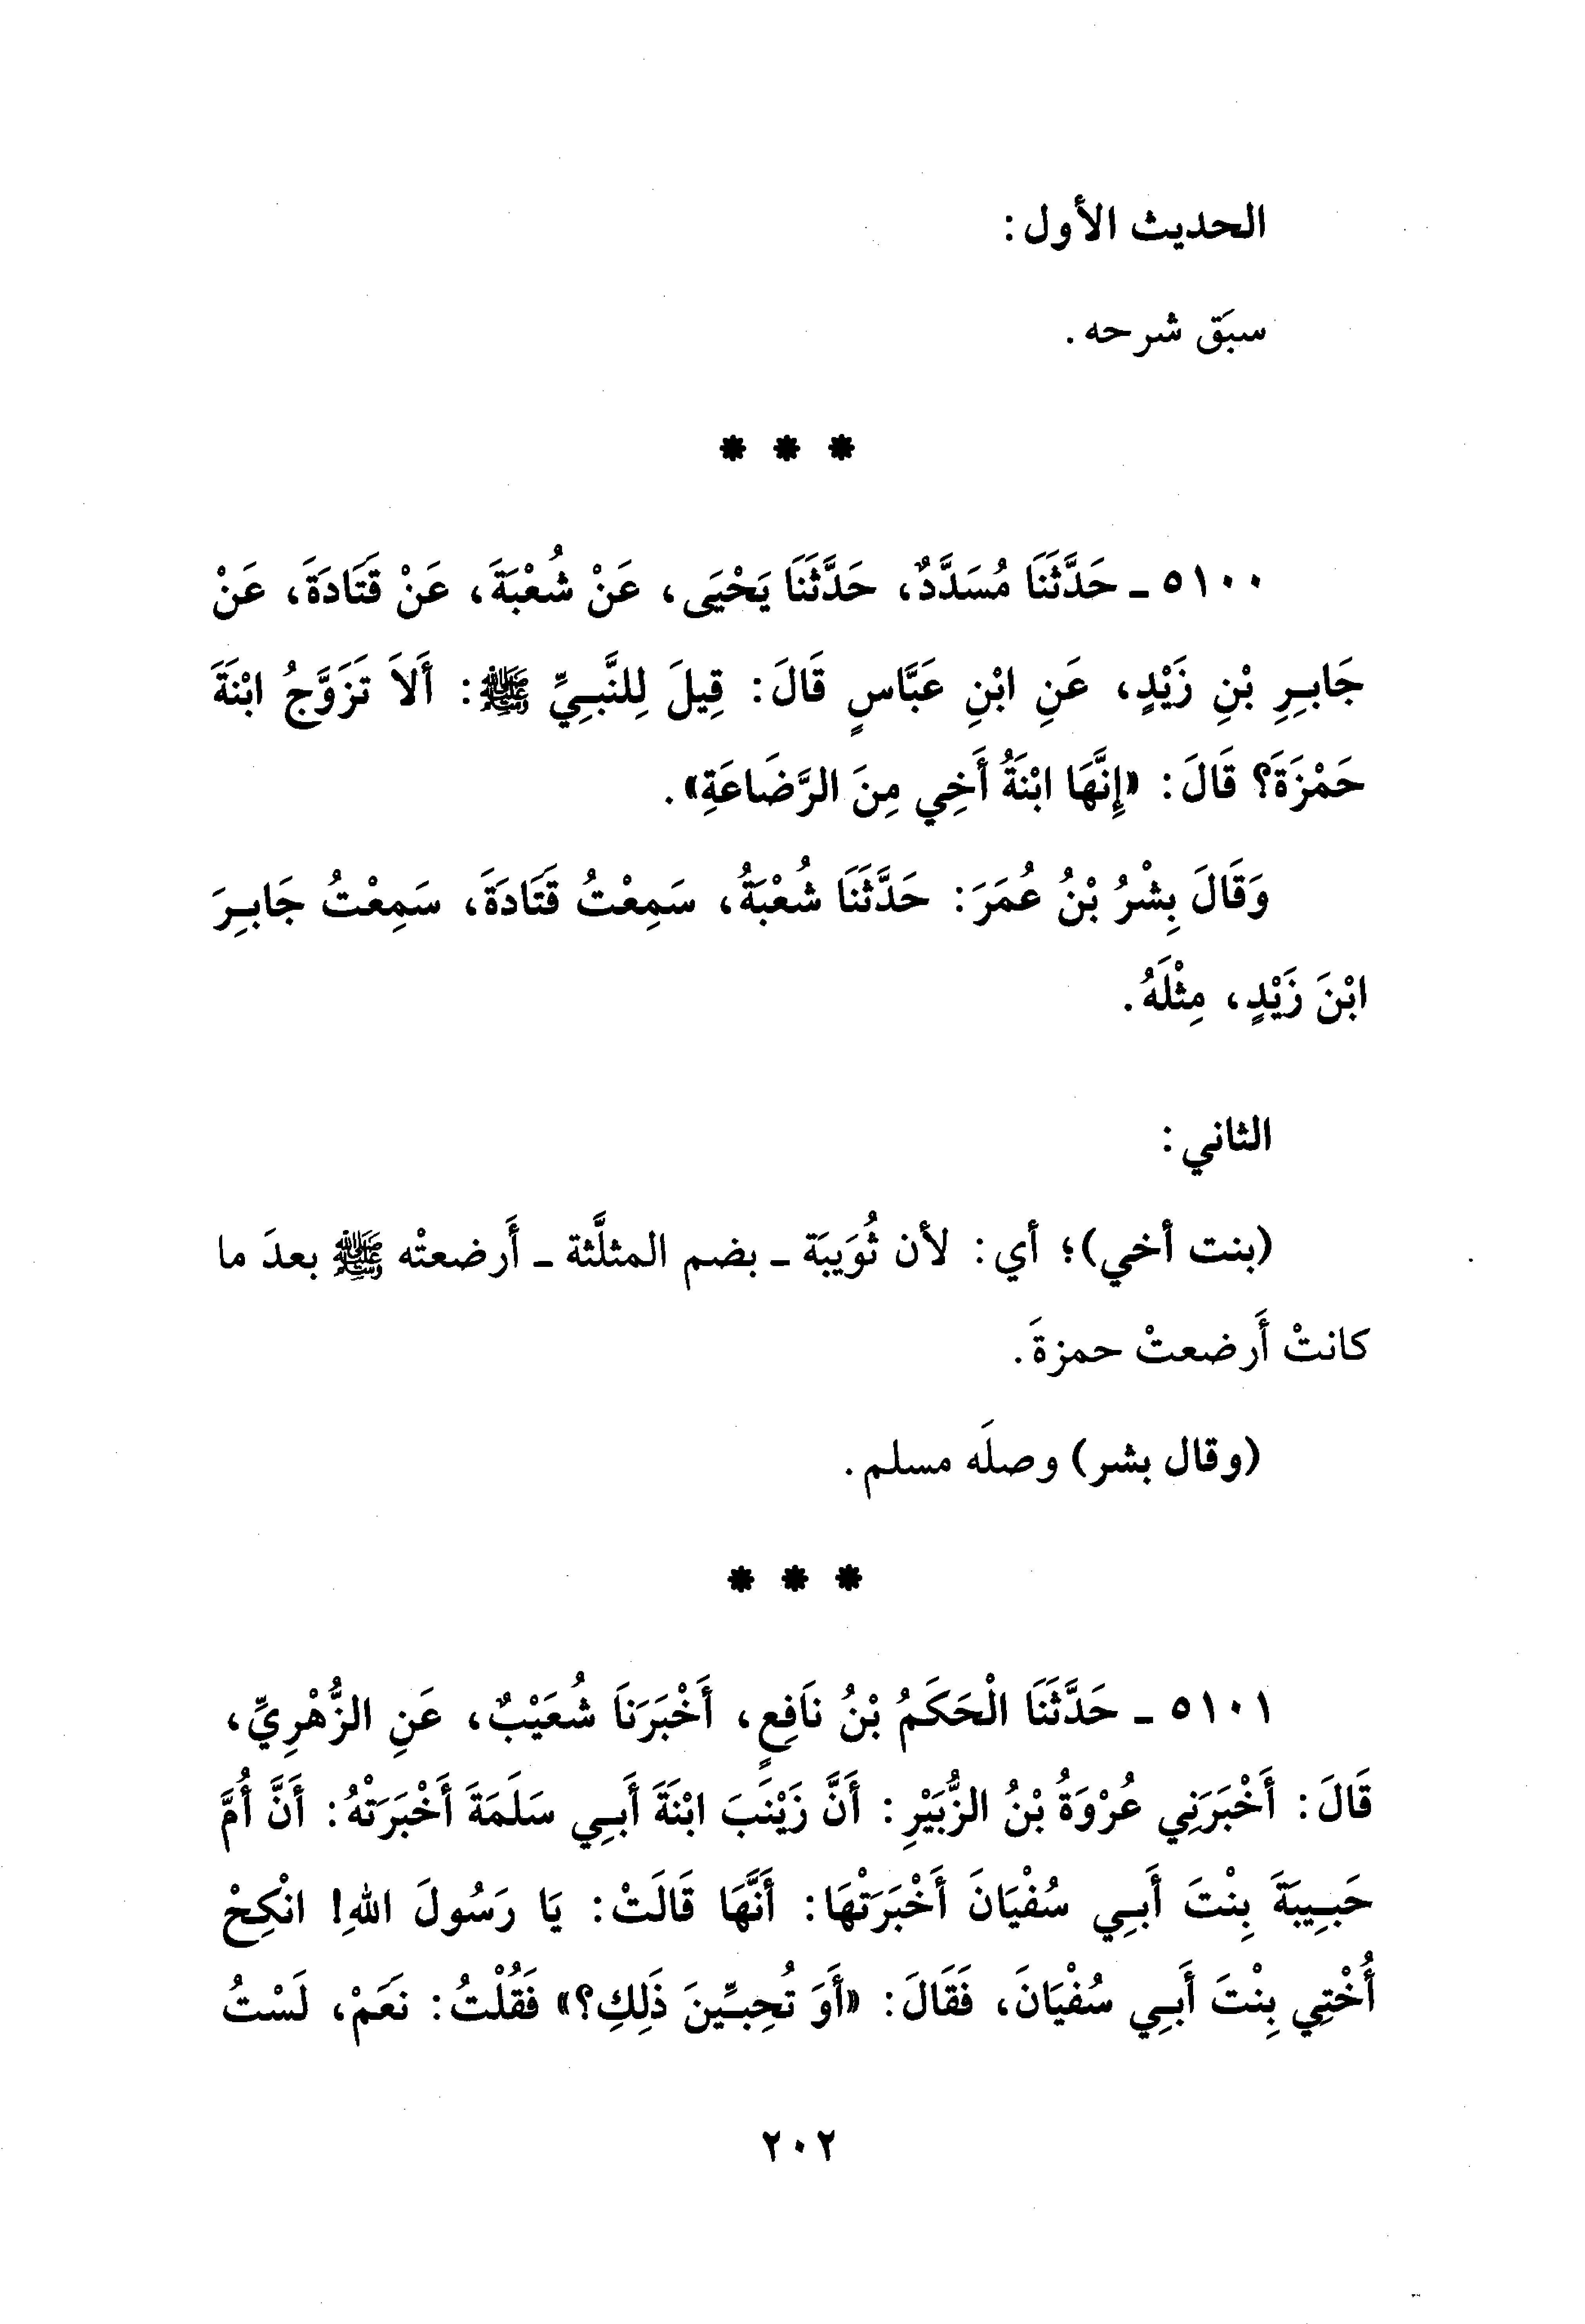 الحديث الأول:
سبَق شرحه.
* * *
٥١٠٠ ـ حَدَّثَنَا مُسَدَّدٌ، حَدَّثَنَا يَحْيَى، عَنْ شُعْبَةَ، عَنْ قَتَادَةَ، عَنْ
جَابِرِ بْنِ زَيْدٍ، عَنِ ابْنِ عَبَّاسٍ قَالَ: قِيلَ لِلنَّبِيِّ ﷺ: أَلاَ تَزَوَّجُ ابْنَةَ
حَمْزَةَ؟ قَالَ: «إِنَّهَا ابْنَةُ أَخِي مِنَ الرَّضَاعَةِ».
وَقَالَ بِشْرُ بْنُ عُمَرَ: حَدَّثَنَا شُعْبَةُ، سَمِعْتُ قَتَادَةَ، سَمِعْتُ جَابِرَ
ابْنَ زَيْدٍ، مِثْلَهُ.
الثاني:
(بنت أخي)؛ أي: لأن ثُوَيبَة ـ بضم المثلَّثة ـ أَرضعتْه ﷺ بعدَ ما
كانتْ أَرضعتْ حمزةَ.
(وقال بشر) وصلَه مسلم.
* * *
٥١٠١ ـ حَدَّثَنَا الْحَكَمُ بْنُ نَافِعٍ، أَخْبَرَنَا شُعَيْبٌ، عَنِ الزُّهْرِيِّ،
قَالَ: أَخْبَرَنِي عُرْوَةُ بْنُ الزُّبَيْرِ: أَنَّ زَيْنَبَ ابْنَةَ أَبِي سَلَمَةَ أَخْبَرَتْهُ: أَنَّ أُمَّ
حَبِيبَةَ بِنْتَ أَبِي سُفْيَانَ أَخْبَرَتْهَا: أَنَّهَا قَالَتْ: يَا رَسُولَ اللهِ! انْكِحْ
أُخْتِي بِنْتَ أَبِي سُفْيَانَ، فَقَالَ: «أَوَ تُحِبِّينَ ذَلِكِ؟» فَقُلْتُ: نَعَمْ، لَسْتُ
٢٠٢